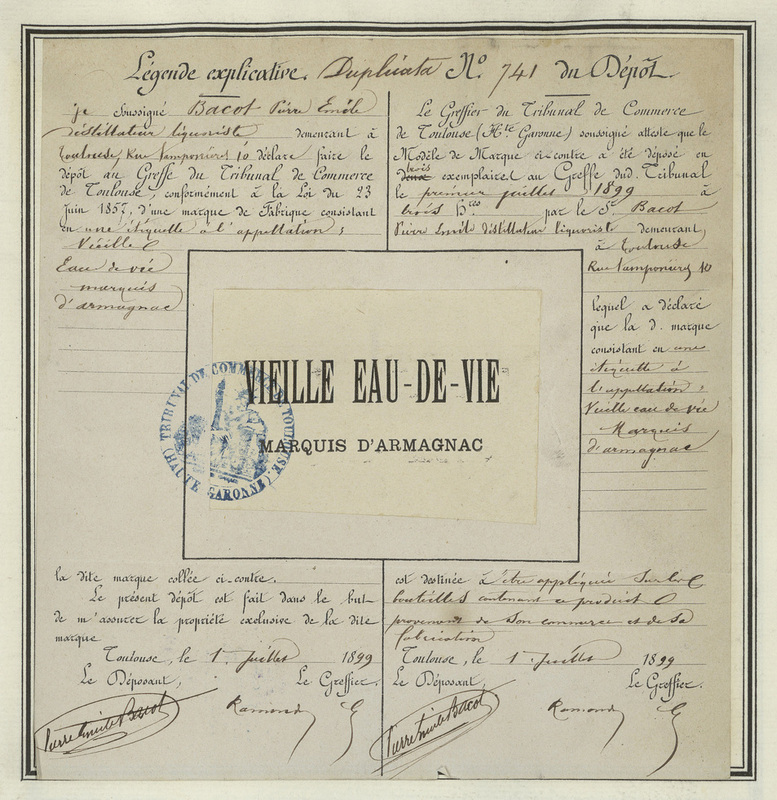 Légende explicative. Duplicata N° 741 du Dépôt.
je soussigné Bacot Pierre Emile
distillateur liquoriste demeurant à
Toulouse, Rue Tamponières 10 déclare faire le
dépôt au Greffe du Tribunal de Commerce
de Toulouse, conformément à la Loi du 23
Juin 1857, d'une marque de Fabrique consistant
en une étiquette à l'appellation :
Vieille
Eau de vie
marquis
d'armagnac
Le Greffier du Tribunal de Commerce
de Toulouse (Hte Garonne) soussigné atteste que le
Modèle de Marque ci-contre a été déposé en
trois
exemplaires au Greffe dud. Tribunal
le premier juillet 1899 à
trois hres par le Sr Bacot
Pierre Emile distillateur liquoriste demeurant
à Toulouse
Rue Tamponières 10
lequel a déclaré
que la d. marque
consistant en une
étiquette à
l'appellation :
Vieille eau de vie
Marquis
d'armagnac
VIEILLE EAU-DE-VIE
MARQUIS D'ARMAGNAC
TRIBUNAL DE COMMERCE TOULOUSE
(HAUTE GARONNE)
la dite marque collée ci-contre.
Le présent dépôt est fait dans le but
de m'assurer la propriété exclusive de la dite
marque
Toulouse, le 1er Juillet 1899
Le Déposant, Le Greffier.
Pierre Emile Bacot Ramond
est destinée à être appliquée sur les
bouteilles contenant ce produit
provenant de son commerce et de sa
fabrication
Toulouse, le 1er Juillet 1899
Le Déposant, Le Greffier.
Pierre Emile Bacot Ramond